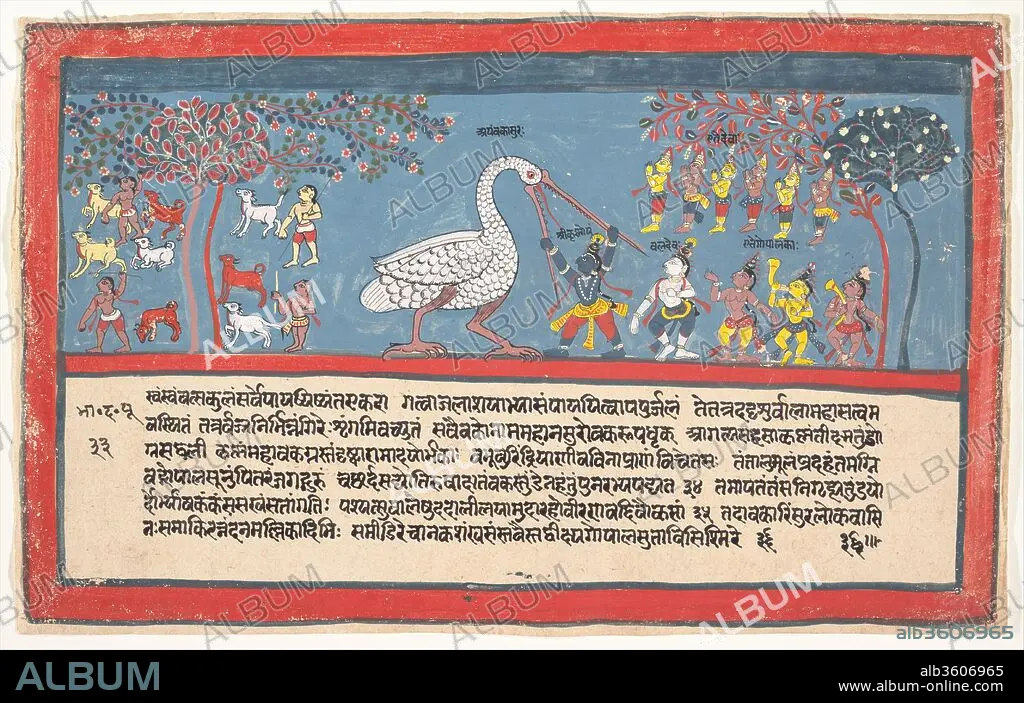 अयंवकासुरः
एतेदेवाः
श्रीकृष्णोयं
वलदेवः
एतेगोपालकाः
भा॰द॰पू
३३
स्वंस्वंवत्सकुलंसर्वेपाययिष्यंतएकदा गत्वाजलाशयाभ्यासंपाययित्वापपुर्जलं तेतत्रददृशुर्वालामहासत्वम
वस्थितं तत्रसुर्वज्रनिर्भिन्नंगिरेः शृंगमिवच्युतं सवैवकोनाममहानसुरोवकरूपधृक् आगत्यसहसाकृष्णंतीक्ष्णतुंडो
ग्रसद्वली कृष्णंमहावकग्रस्तंदृष्ट्वारामादयोर्भकाः वभूवुरिंद्रियाणीवविनाप्राणंविचेतसः तंतालुमूलंप्रदहंतमग्नि
वद्गोपालसूनुंपितरंजगद्गुरुं चछर्दसद्योतिरुषाक्षतंवकस्तुंडेनहंतुंपुनरभ्यपद्यत ३४ तमापतंतंसनिगृह्यतुंडयो
र्दोर्भ्यांवकंकंससखंसतांगतिः पश्यत्सुवालेषुददारलीलयामुदावहोवीरणवद्दिवौकसां ३५ तदावकारिंसुरलोकवासि
नःसमाकिरन्नंदनमल्लिकादिभिः समीडिरेचानकशंखसंस्तवैस्तद्वीक्ष्यगोपालसुताविसिस्मिरे ३६ ३६॥
ALBUM
alb3606965
ALBUM
alb3606965
www.album-online.com